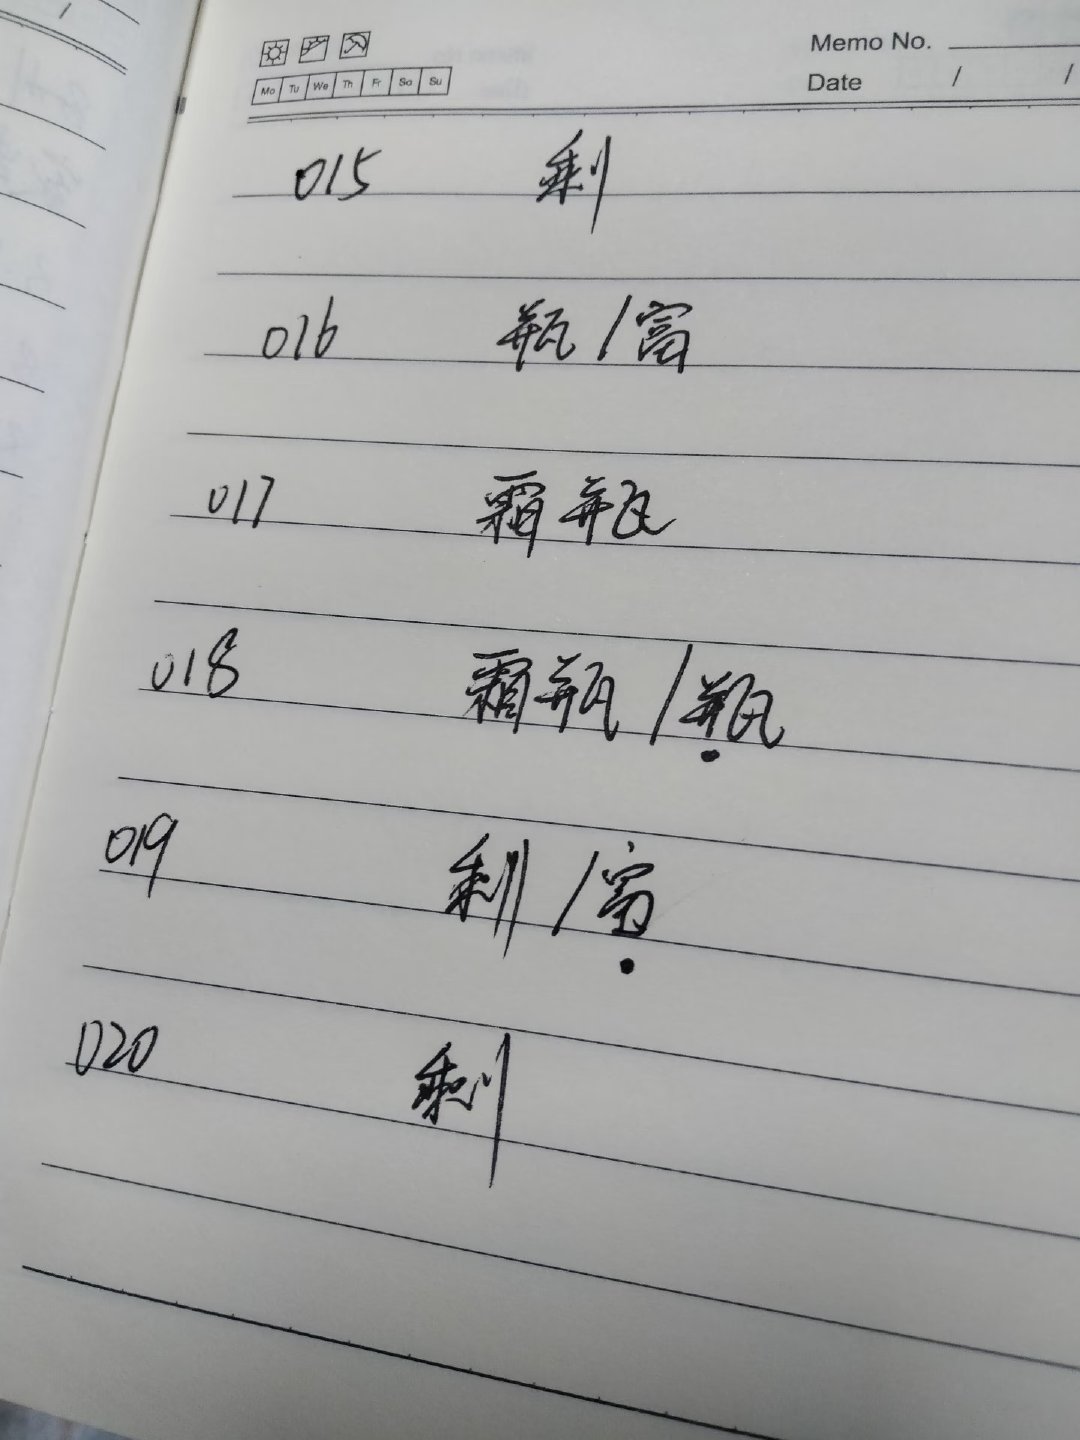 Memo No.
Mo Tu We Th Fr Sa Su
Date / /
015 剩
016 瓶/富
017 霜瓶
018 霜瓶/瓶
019 剩/富
020 剩